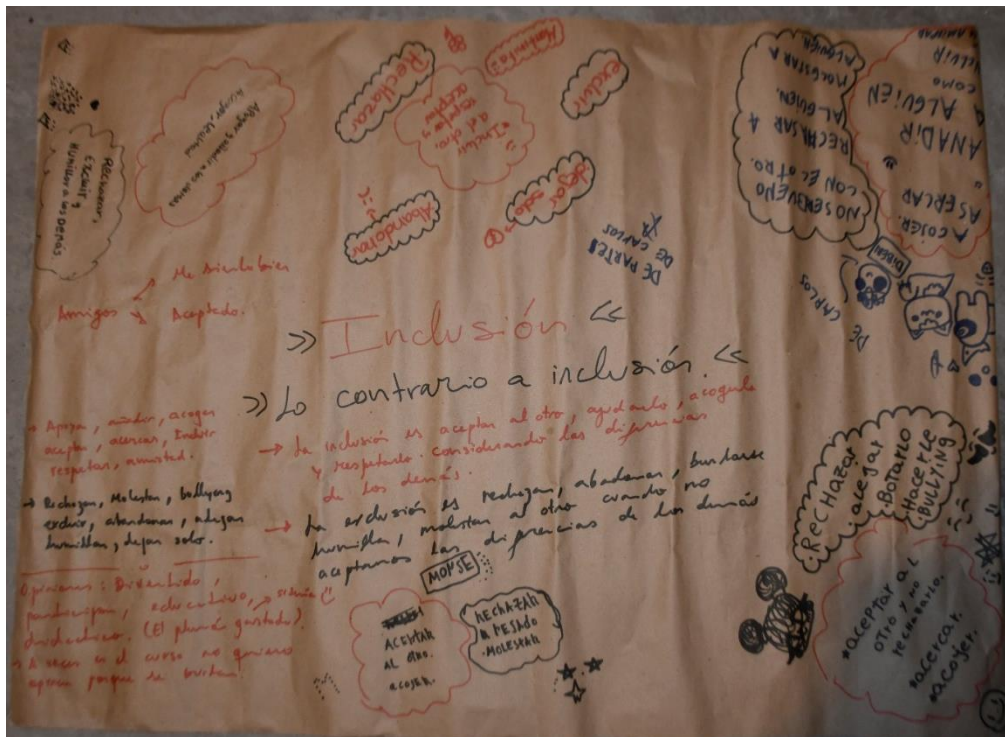 Rechazar,
Excluir y
Humillar a los Demás.
Apoyar, añadir a los demás
Rechazar
Incluir
al otro,
respetar y
aceptar
excluir
dejar solo
Abandonar
NO SER BUENO
CON EL OTRO.
RECHASAR A
ALGUIEN.
MOLESTAR A
ALGUIEN
ACOJER.
ASERCAR
AÑADIR
ALGUIEN
COMO
DE PARTE
DE CARLOS
DE
CARLOS
Amigos
Me siento bien
Aceptado.
>> Inclusión <<
>> Lo contrario a inclusión. <<
→ Apoyar, añadir, acoger
aceptar, acercar, Incluir
respetar, amistad.
→ Rechazar, Molestar, bullying
excluir, abandonar, alejar
humillar, dejar solo.
→ La inclusión es aceptar al otro, ayudarlo, acogerlo
y respetarlo. considerando las diferencias
de los demás.
→ La exclusión es rechazar, abandonar, burlarse
humillar, molestar al otro cuando no
aceptamos las diferencias de los demás
Opiniones: Divertido,
participar, educativo,
(El plumón gastado).
A veces en el curso no quieren
porque
MONSE
ACEPTAR
AL OTRO.
ACOJER.
RECHAZAR
PESADO
·MOLESTAR
·RECHAZAR
·alejar
·BOTARLO
·HACERLE
BULLYING
*aceptar al
OTRO y NO
RECHAZARLO.
*acercar.
*acojer.